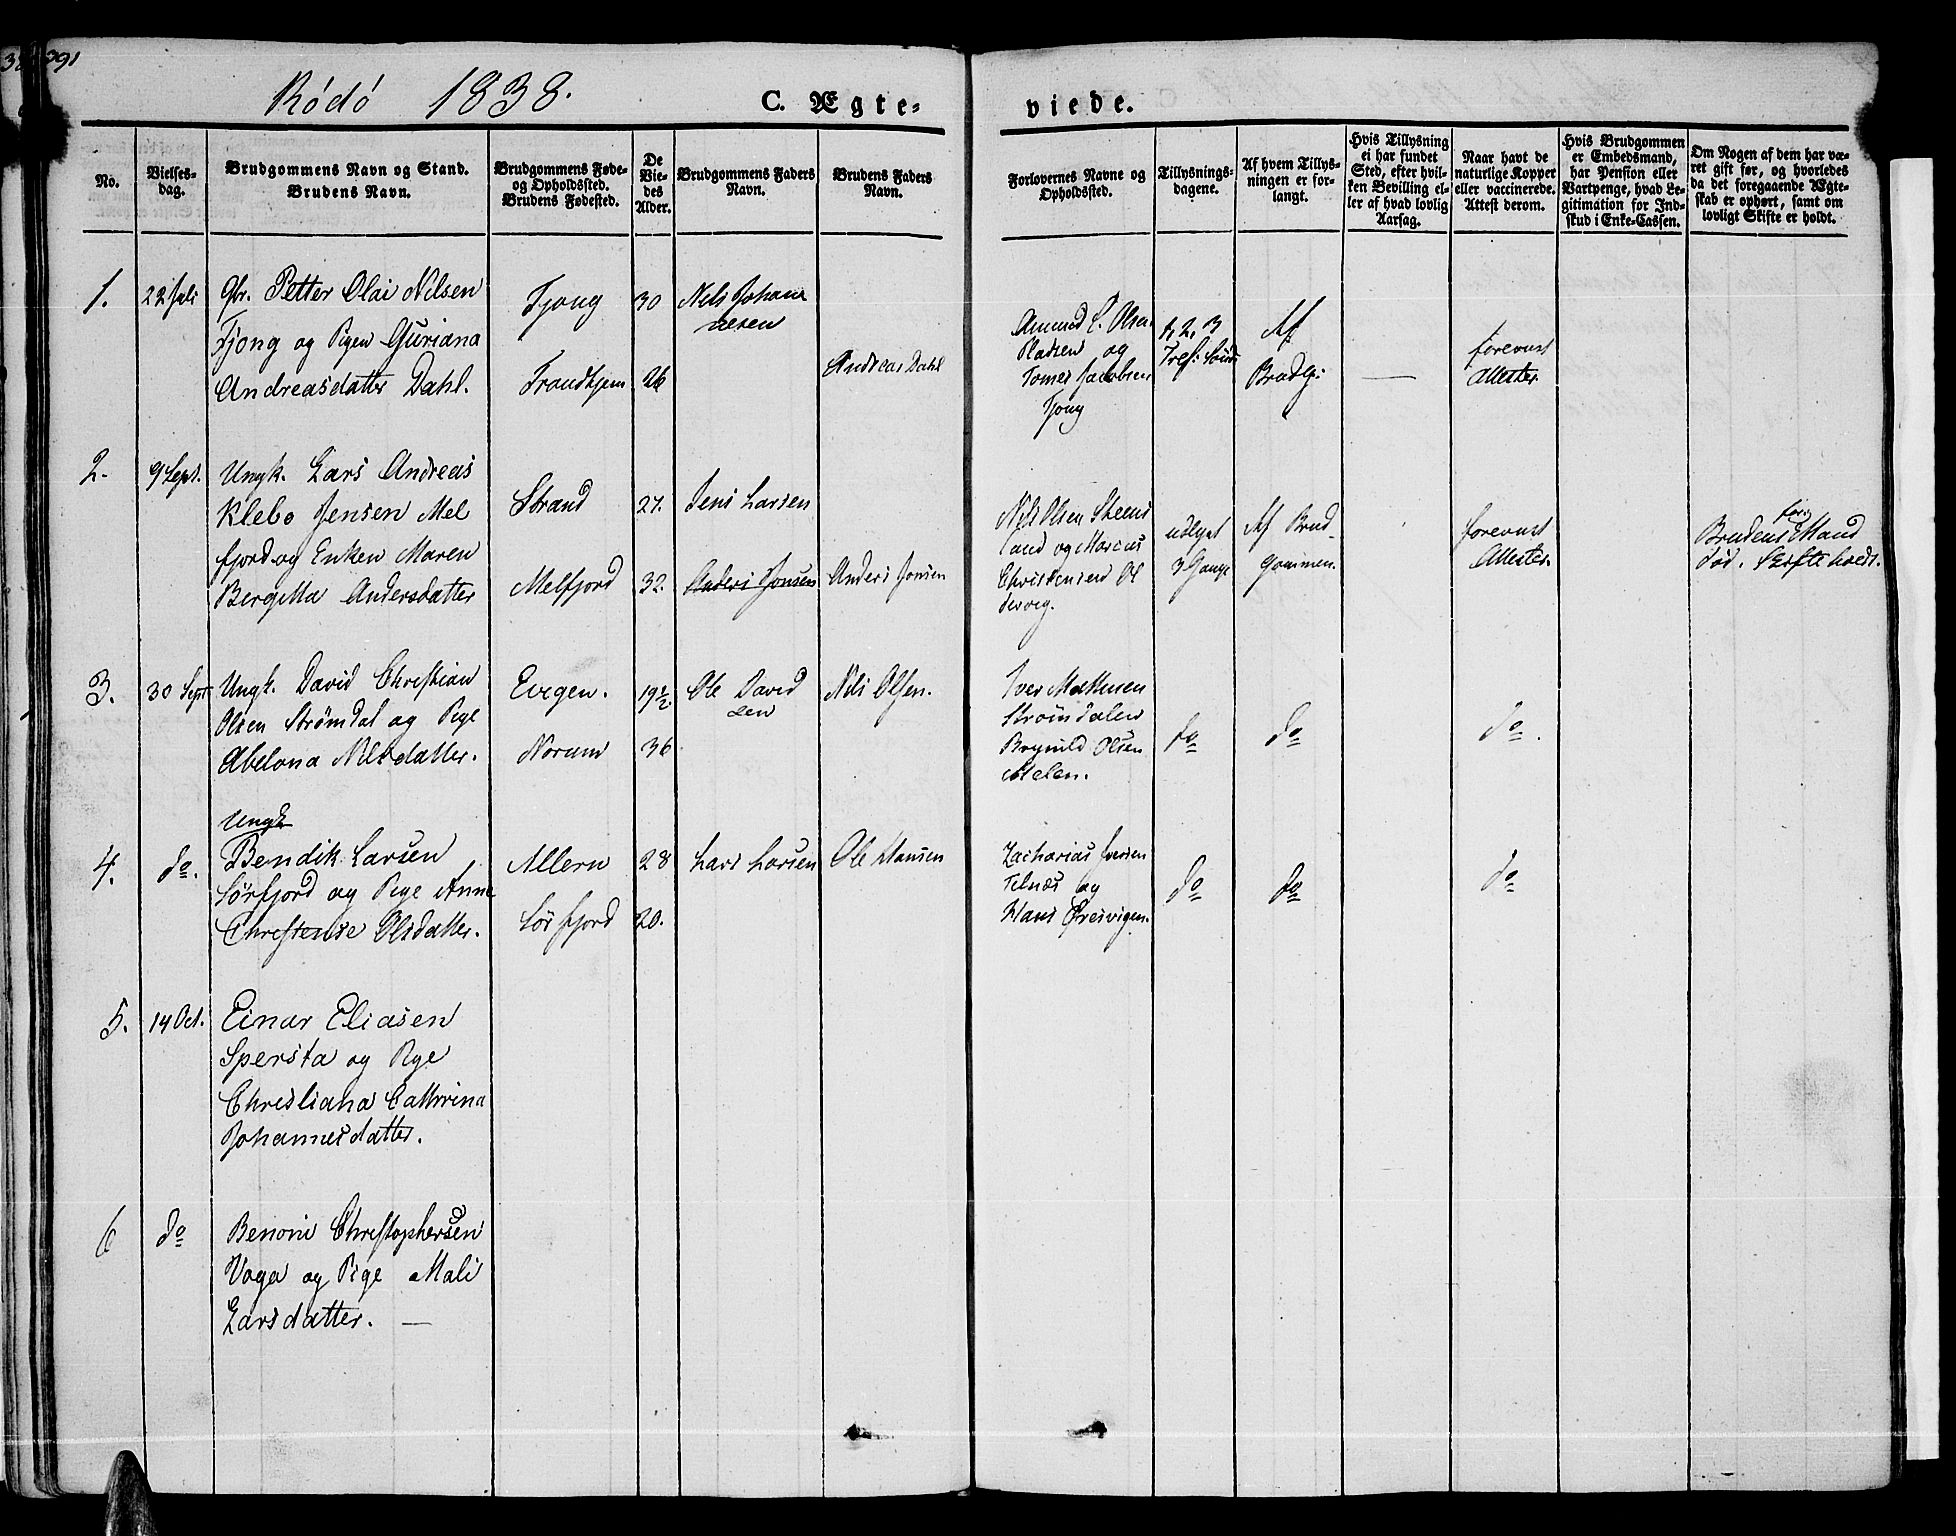 391
Rödö 1838.
C. Ægte-
viede.
No.
Vielses-
dag.
Brudgommens Navn og Stand.
Brudens Navn.
Brudgommens Føde-
og Opholdssted.
Brudens Fødested.
De
Vie-
des
Alder.
Brudgommens Faders
Navn.
Brudens Faders
Navn.
Forlovernes Navne og
Opholdssted.
Tillysnings-
dagene.
Af hvem Tillys-
ningen er for-
langt.
Hvis Tillysning
ei har fundet
Sted, efter hvil-
ken Bevilling el-
ler af hvad lovlig
Aarsag.
Naar havt de
naturlige Kopper
eller vaccinerede.
Attest derom.
Hvis Brudgommen
er Embedsmand,
har Pension eller
Vartpenge, hvad Le-
gitimation for Ind-
skud i Enke-Cassen.
Om Nogen af dem har væ-
ret gift før, og hvorledes
da det foregaaende Ægte-
skab er ophørt, samt om
lovligt Skifte er holdt.
1.
22 Juli
Gbr. Petter Olai Nilsen
Fjong og Pigen Guriana
Andreasdatter Dahl.
Tjong
Trondhjem
30
26
Nils Johan
nesen
Andreas Dahl
Amund L. Olsen
Pladsen og
Tomes Jacobsen
Tjong
1, 2, 3
Tref: Sönd:
Af
Brudg:
—
forevist
Attester.
2.
9 Sept.
Ungk. Lars Andreas
Klebo Jensen Mel
fjord og Enken Maren
Bergitta Andersdatter
Strand
Melfjord
27.
32.
Jens Larsen
Anders Jonsen
Anders Jonsen
Nils Olsen Steens
land og Marcus
Christensen Ol
dervig.
udlyst
3 Gange
Af Brud
gommen.
forevist
Attester.
Brudens forr. Mand
død. Skifte holdt.
3.
30 Sept.
Ungk. David Christian
Olsen Strømdal og Pige
Abelona Nilsdatter.
Evegen.
Norum
19½.
36
Ole David
sen
Nils Olsen.
Iver Mathisen
Strömdalen
Brynild Olsen
Melen.
do
do
do.
4.
do.
Ungk
Bendik Larsen
Sörfjord og Pige Anne
Christense Olsdatter.
Allern
Sör fjord
28
20.
Lars Larsen
Ole Hansen
Zacharias Iversen
Telnæs og
Hans Øresvigen.
do
do
do
5.
14 Oct.
Einar Eliasen
Spersta og Pige
Christiana Cathrina
Johannesdatter.
6
do
Benoni Christophersen
Vaga og Pige Mali
Larsdatter. —